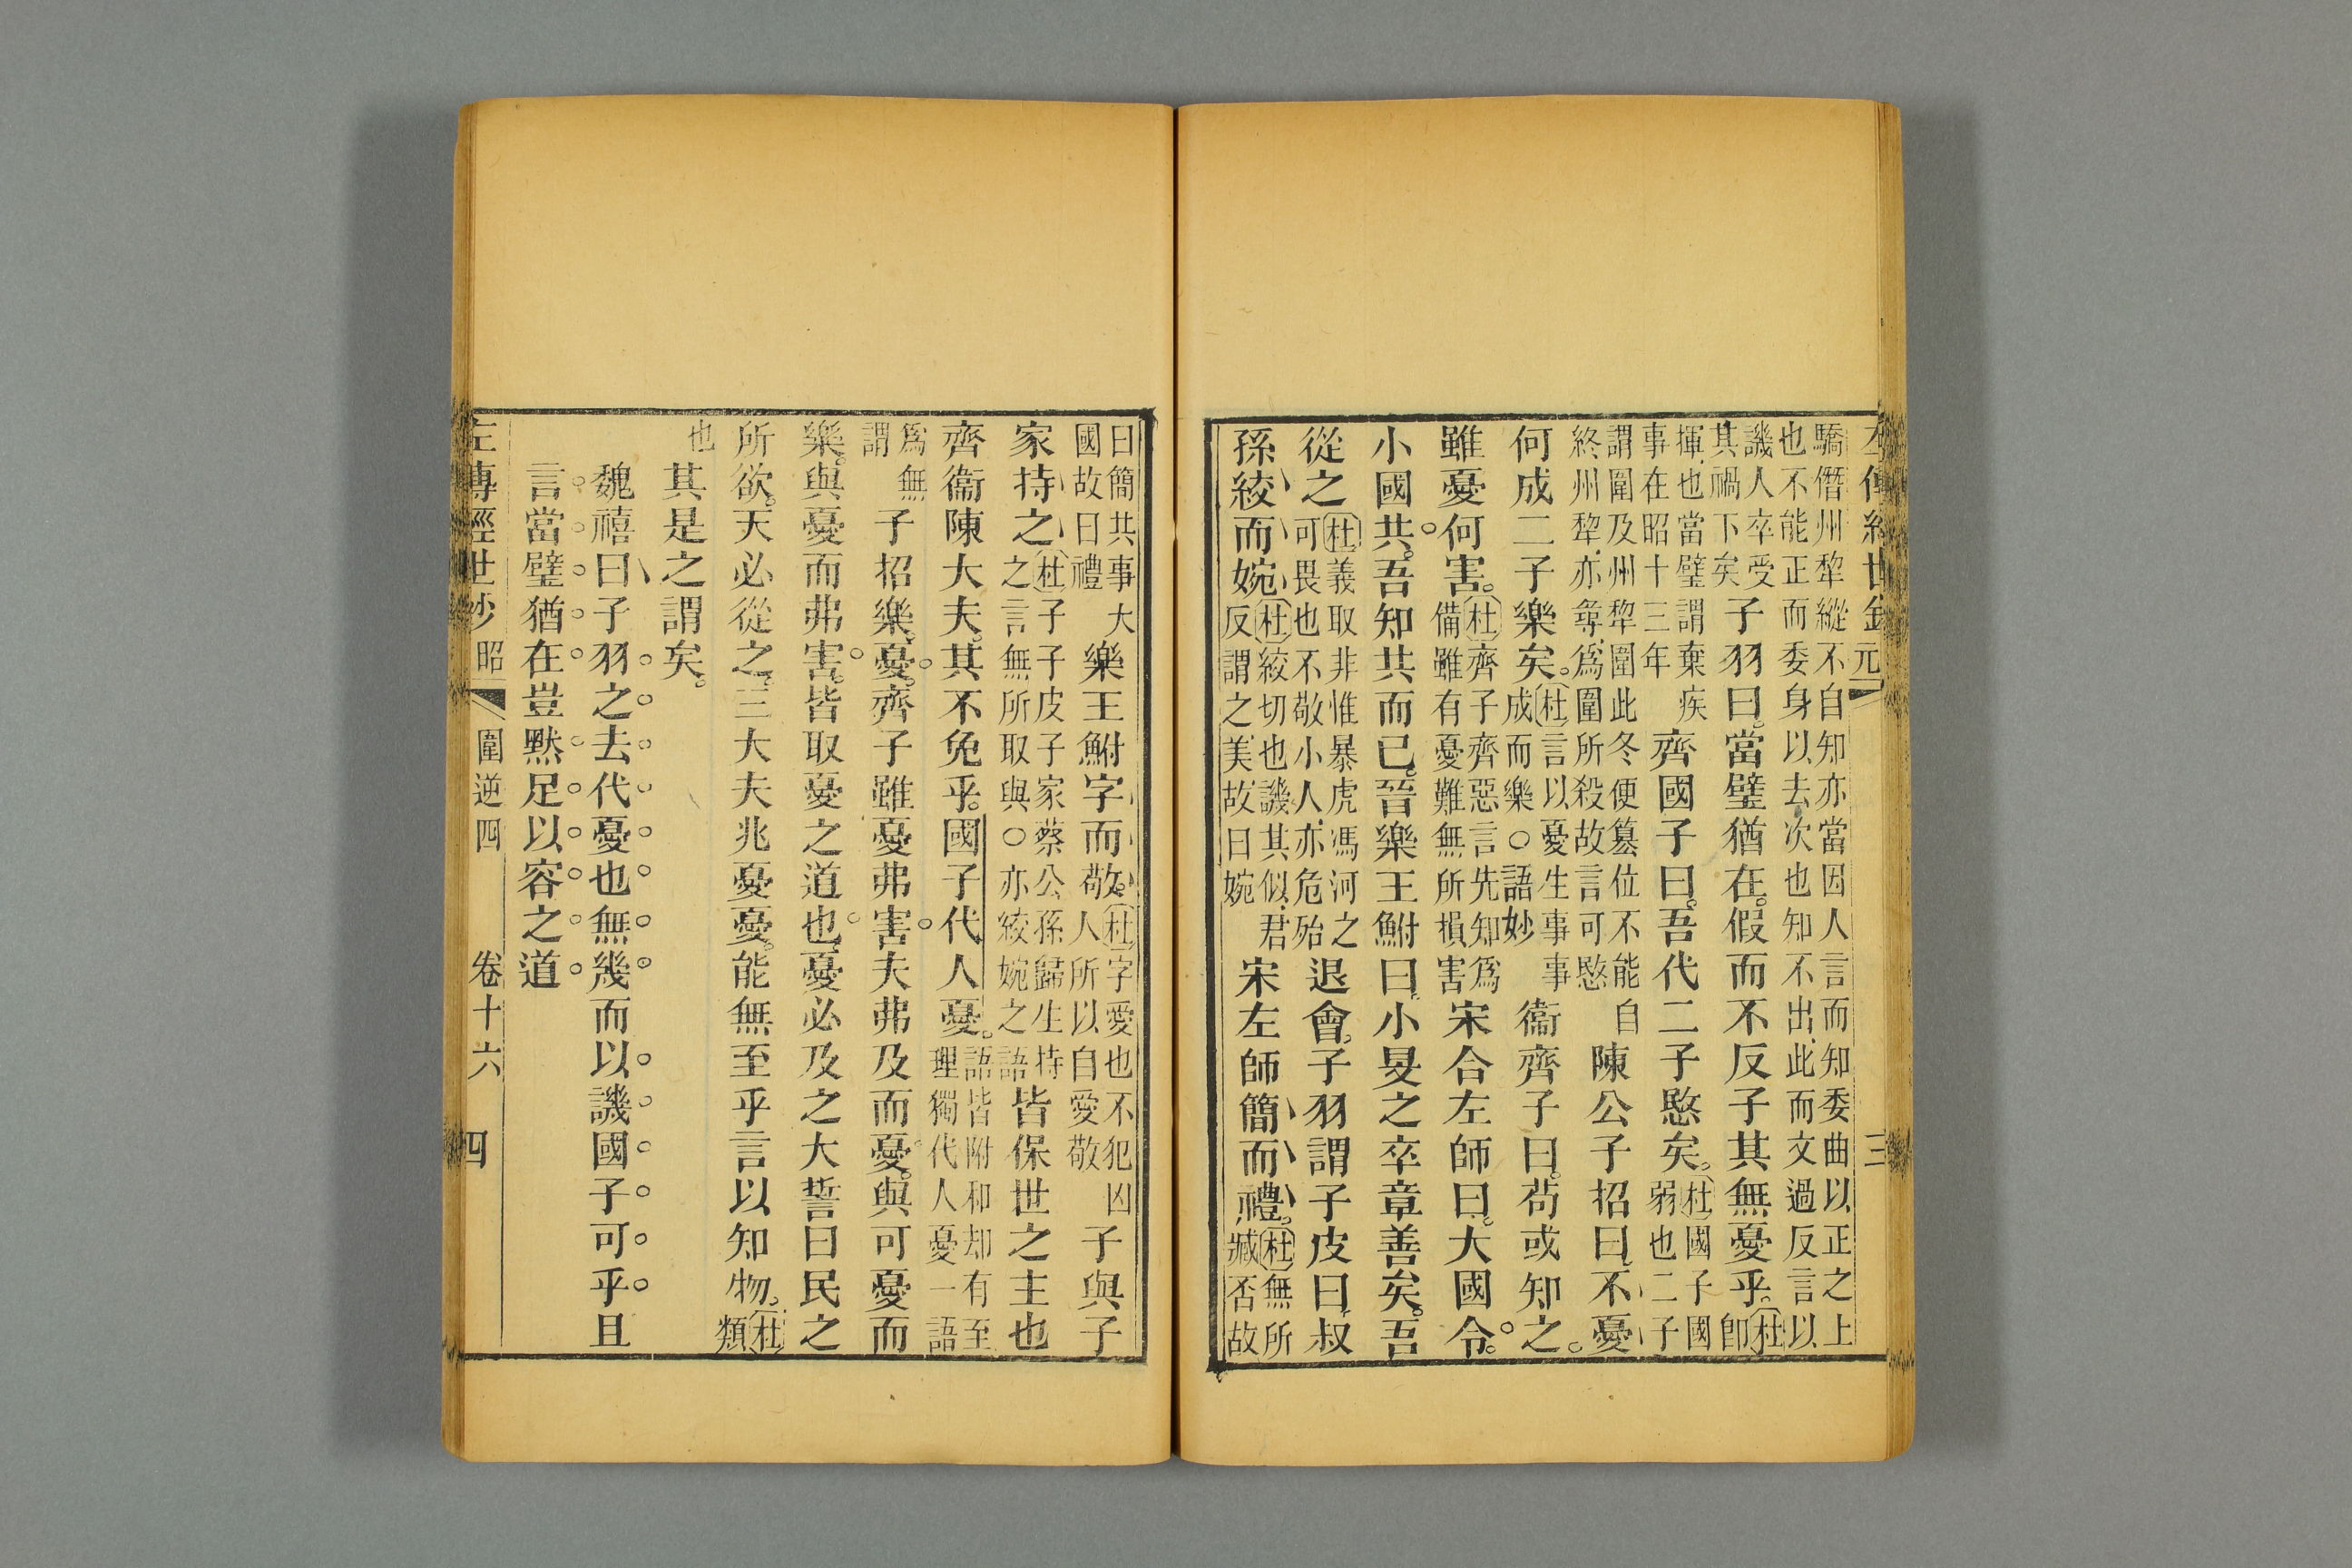 左傳經世鈔 元 三
驕僭州犂縱不自知亦當因人言而知委曲以正之上
也不能正而委身以去次也知不出此而文過反言以
譏人卒受其禍下矣子羽曰當璧猶在假而不反子其無憂乎杜卽
揮也當璧謂棄疾事在昭十三年齊國子曰吾代二子愍矣杜國子國弱也二子
謂圍及州犂圍此冬便簒位不能自終州犂亦尋爲圍所殺故言可愍陳公子招曰不憂
何成二子樂矣杜言以憂生事事成而樂○語妙衞齊子曰苟或知之
雖憂何害杜齊子齊惡言先知爲備雖有憂難無所損害宋合左師曰大國令
小國共吾知共而已晉樂王鮒曰小旻之卒章善矣吾
從之杜義取非惟暴虎馮河之可畏也不敬小人亦危殆退會子羽謂子皮曰叔
孫絞而婉杜絞切也譏其似君反謂之美故曰婉宋左師簡而禮杜無所臧否故
曰簡共事大國故曰禮樂王鮒字而敬杜字愛也不犯凶人所以自愛敬子與子
家持之杜子子皮子家蔡公孫歸生持之言無所取與○亦絞婉之語皆保世之主也
齊衞陳大夫其不免乎國子代人憂語皆附和却有至理獨代人憂一語
爲無謂子招樂憂齊子雖憂弗害夫弗及而憂與可憂而
樂與憂而弗害皆取憂之道也憂必及之大誓曰民之
所欲天必從之三大夫兆憂憂能無至乎言以知物杜類
也其是之謂矣
魏禧曰子羽之去代憂也無幾而以譏國子可乎且
言當璧猶在豈黙足以容之道
左傳經世鈔 昭 圍逆四 卷十六 四